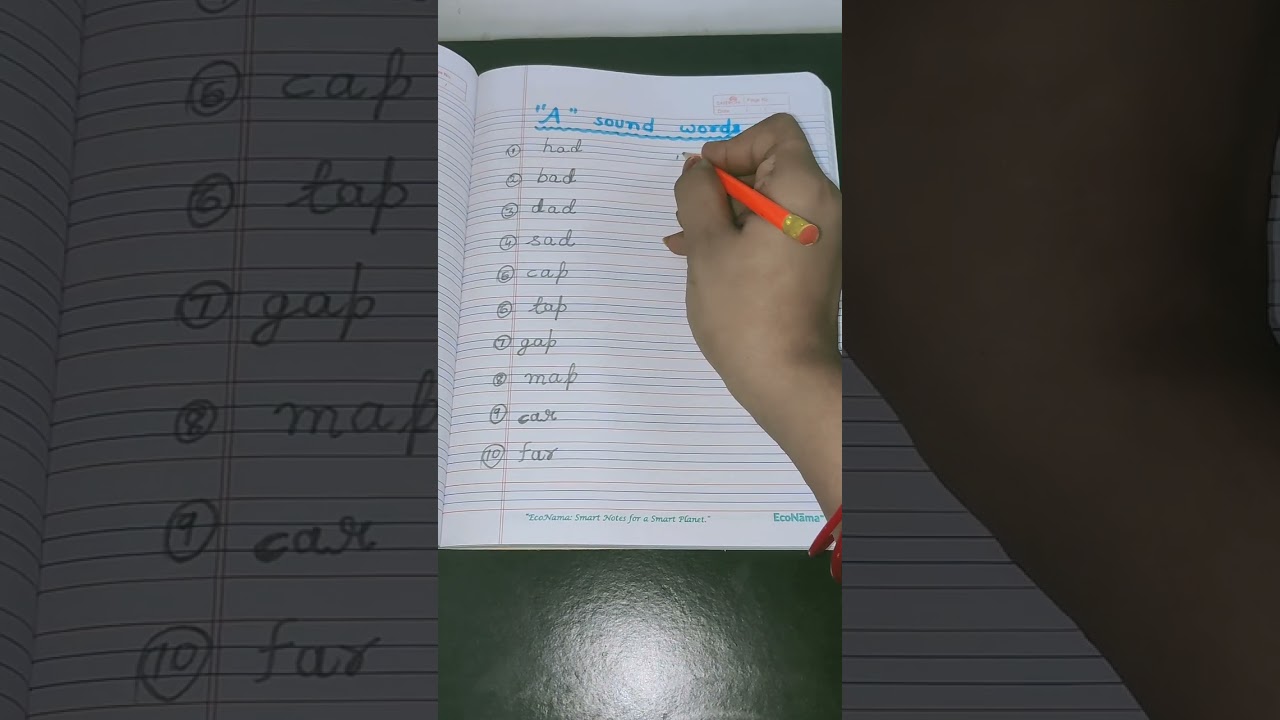 "A" sound words
① had
② bad
③ dad
④ sad
⑥ cap
⑥ tap
⑦ gap
⑧ map
⑨ car
⑩ far
"EcoNama: Smart Notes for a Smart Planet."
EcoNāma
Page No.
Date
⑥ cap
⑥ tap
⑦ gap
⑧ map
⑨ car
⑩ far